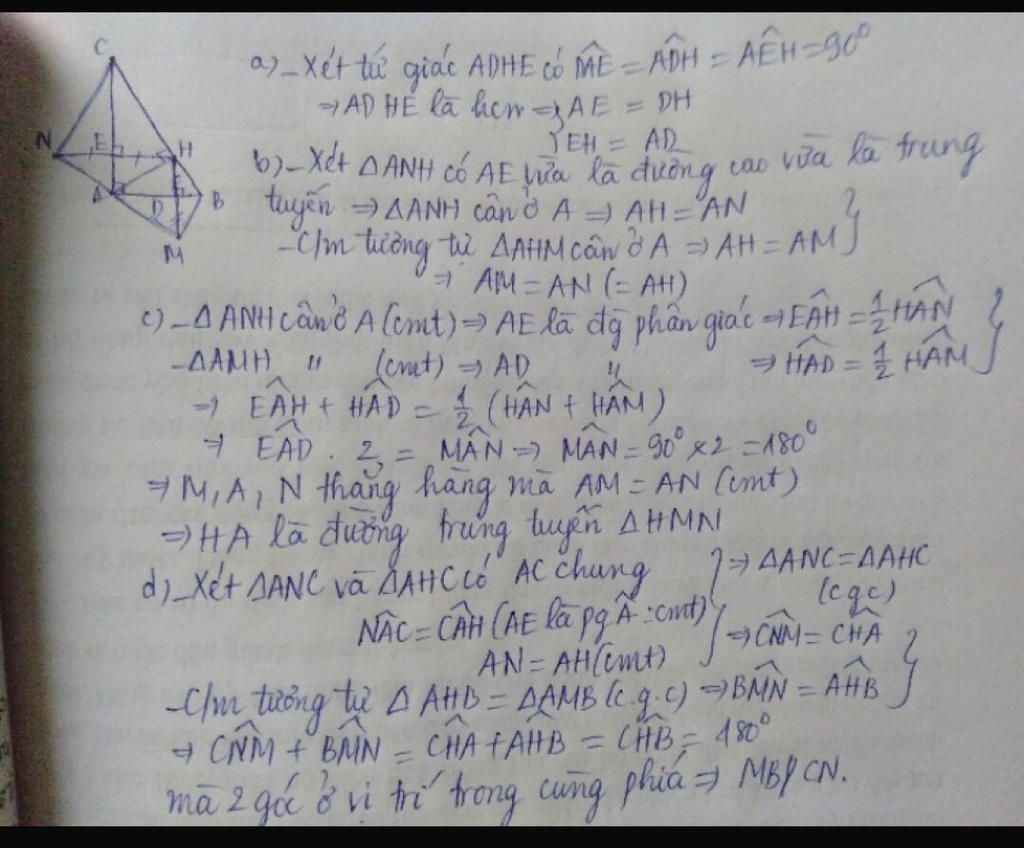 C
N
E
H
A
D
B
M
a)_Xét tứ giác ADHE có M̂E = AD̂H = AÊH = 90°
⇒ ADHE là hcn ⇒ { AE = DH
{ EH = AD
b)_Xét ΔANH có AE vừa là đường cao vừa là trung
tuyến ⇒ ΔANH cân ở A ⇒ AH = AN }
_C/m tương tự ΔAHM cân ở A ⇒ AH = AM }
⇒ AM = AN (= AH)
c)_ΔANH cân ở A (cmt) ⇒ AE là đg phân giác ⇒ EÂH = 1/2 HÂN }
_ΔAMH " (cmt) ⇒ AD " ⇒ HÂD = 1/2 HÂM }
⇒ EÂH + HÂD = 1/2 (HÂN + HÂM)
⇒ EÂD . 2 = MÂN ⇒ MÂN = 90° × 2 = 180°
⇒ M, A, N thẳng hàng mà AM = AN (cmt)
⇒ HA là đường trung tuyến ΔHMN
d)_Xét ΔANC và ΔAHC có AC chung } ⇒ ΔANC = ΔAHC
(c g c)
NÂC = CÂH (AE là pg Â : cmt) } ⇒ CN̂M = CĤA }
AN = AH (cmt)
_C/m tương tự ΔAHB = ΔAMB (c.g.c) ⇒ BM̂N = AĤB }
⇒ CN̂M + BM̂N = CĤA + AĤB = CĤB = 180°
mà 2 góc ở vị trí trong cùng phía ⇒ MB // CN.